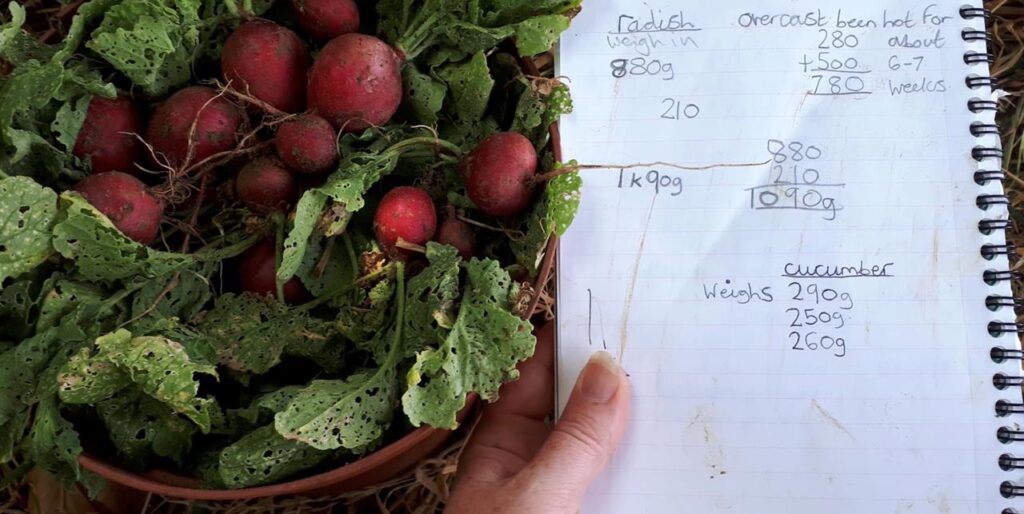 radish
weigh in
880g
210
1k90g
overcast been hot for
280 about
+500 6-7
780 weeks
880
210
1090g
cucumber
Weighs 290g
250g
260g